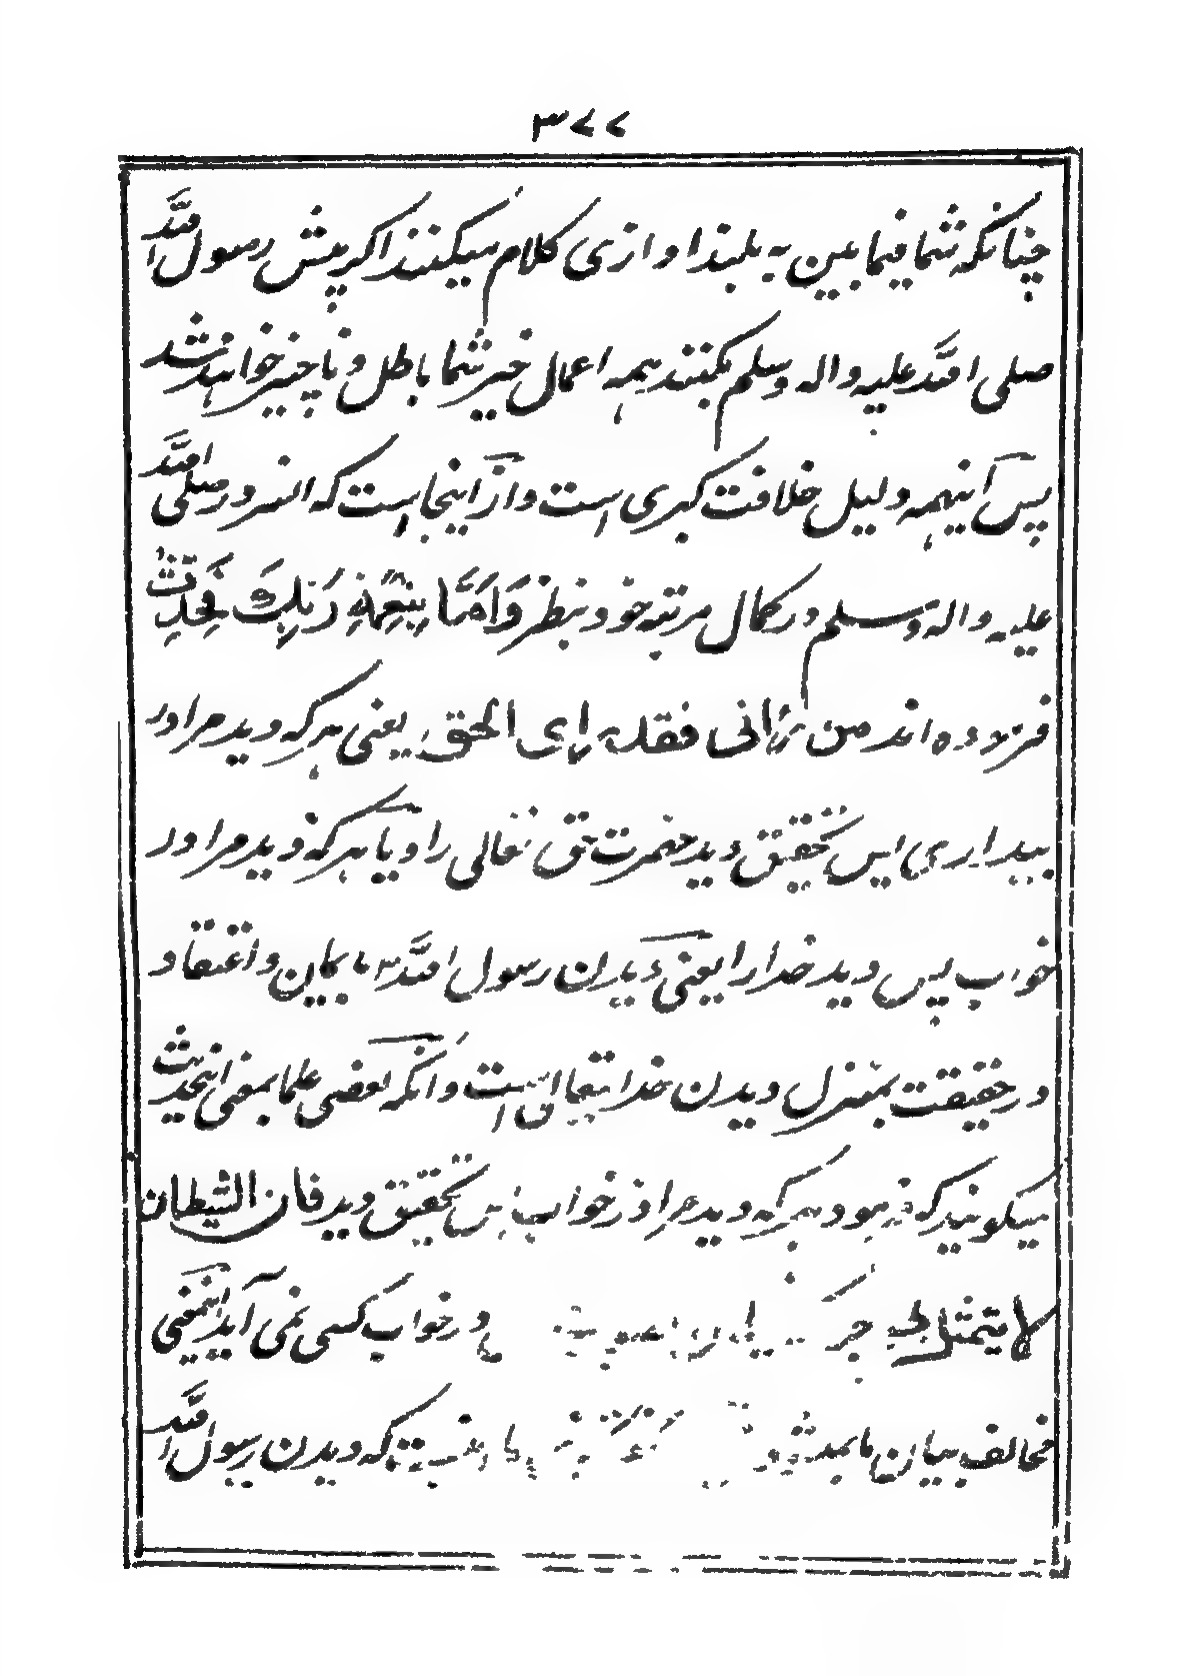 ۳۷۷
چنانکه شما فیما بین به بلند اوازی کلام میکنند اکر پیش رسول الله
صلی الله علیه واله وسلم بکنند همه اعمال خیر شما باطل و ناچیز خواهند شد
پس اینهمه دلیل خلافت کبری است و از اینجا است که انسرور صلی الله
علیه واله وسلم در کمال مرتبه خود بنظر وَاَمَّا بِنِعْمَةِ رَبِّكَ فَحَدِّثْ
فرموده اند من رانی فقد رای الحق یعنی هر که دید مرا در
بیداری پس تحقیق دید حضرت حق تعالی را و یا هر که دید مرا در
خواب پس دید خدا را یعنی دیدن رسول الله با یمان و اعتقاد
در حقیقت بمنزل دیدن خدا تعالی است و انکه بعضی علما بمعنی اینحدیث
میکویند که فرمود هر که دید مرا در خواب پس تحقیق دید فان الشیطان
لا یتمثل بی در خواب کسی نمی آید اینمعنی
مخالف بیان ما که دیدن رسول الله